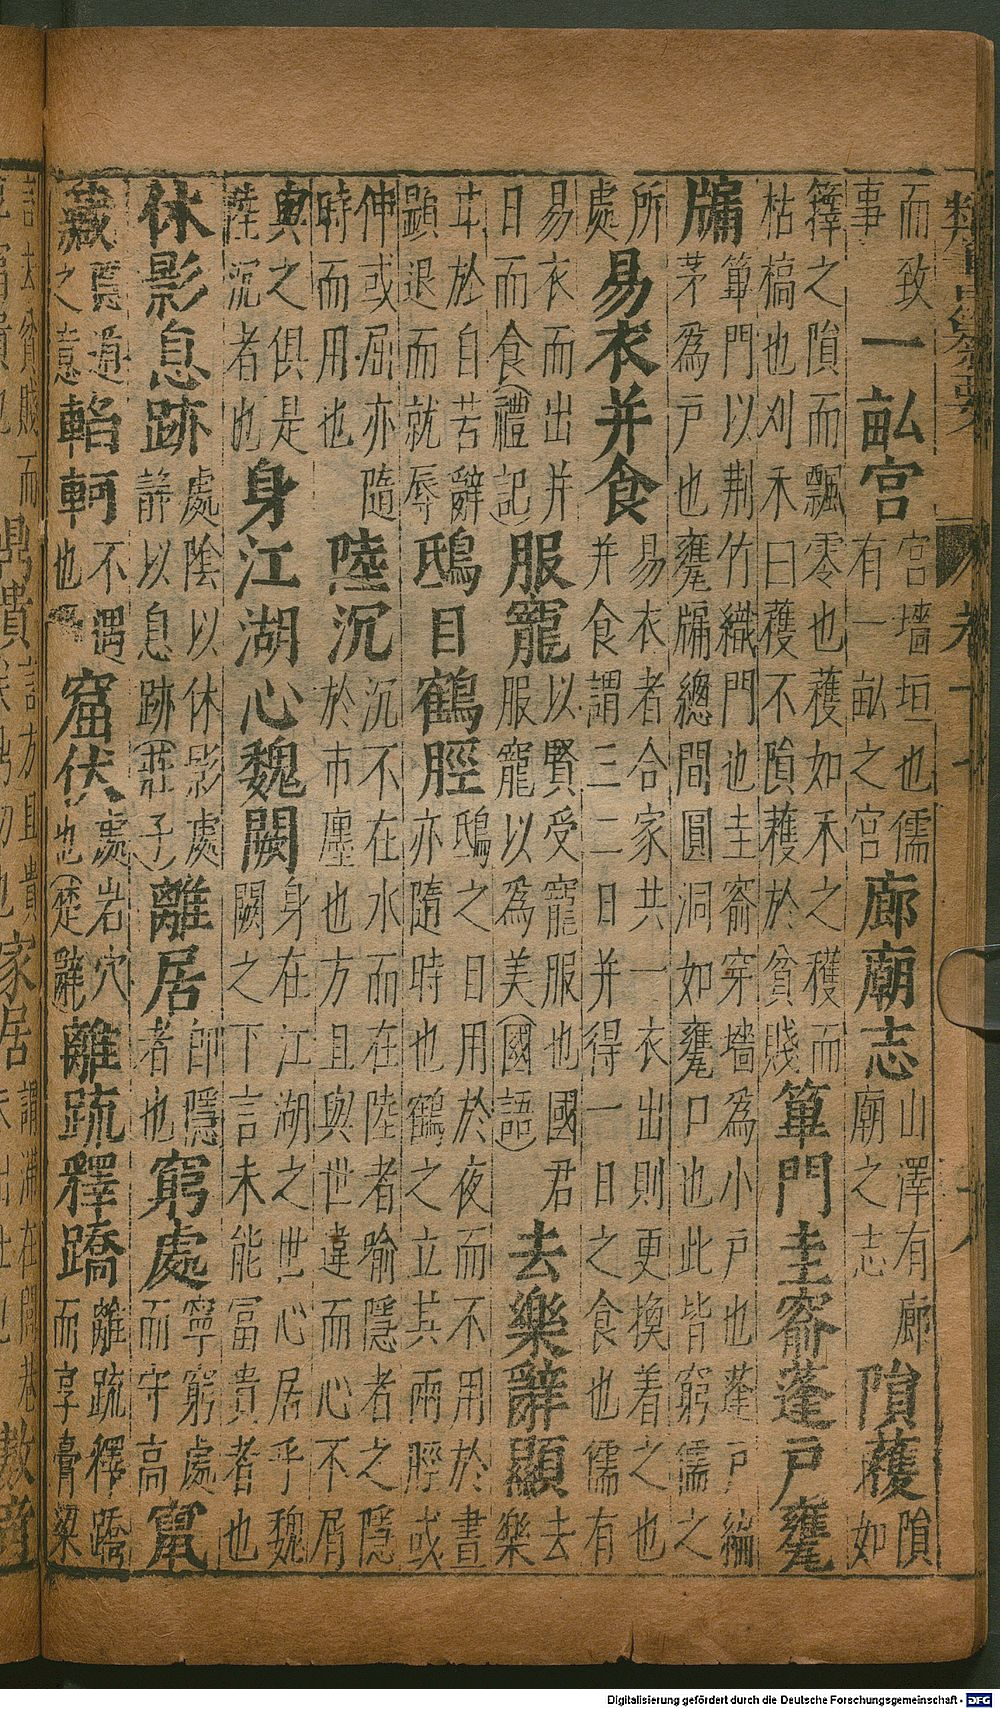 而致
事
一畝宮
宮墻垣也儒
有一畝之宮
廊廟志
山澤有廊
廟之志
隕穫
隕
如
籜之隕而飄零也穫如禾之穫而
枯槁也刈禾曰穫不隕穫於貧賤
篳門圭窬蓬戶甕
牖
篳門以荆竹織門也圭窬穿墻為小戶也蓬戶編
茅為戶也甕牖總間圓洞如甕口也此皆窮儒之
所
處
易衣并食
易衣者合家共一衣出則更換着之也
并食謂三二日并得一日之食也儒有
易衣而出并
日而食(禮記)
服寵
以賢受寵服也國君
服寵以為美(國語)
去樂辭顯
去
樂
於自苦辭
顯退而就辱
鴟目鶴脛
鴟之目用於夜而不用於晝
亦隨時也鶴之立其兩脛或
伸或屈亦隨
時而用也
陸沉
沉不在水而在陸者喻隱者之隱
於市廛也方且與世違而心不屑
與之俱是
陸沉者也
身江湖心魏闕
身在江湖之世心居乎魏
闕之下言未能冨貴者也
休影息跡
處陰以休影處
靜以息跡(莊子)
離居
隱
者也
窮處
寧窮處
而守高
竄
藏
匿遁
之意
轗軻
不遇
也
窟伏
處岩穴
也(楚辭)
離疏釋蹻
離疏釋蹻
而享膏梁
Digitalisierung gefördert durch die Deutsche Forschungsgemeinschaft - DFG